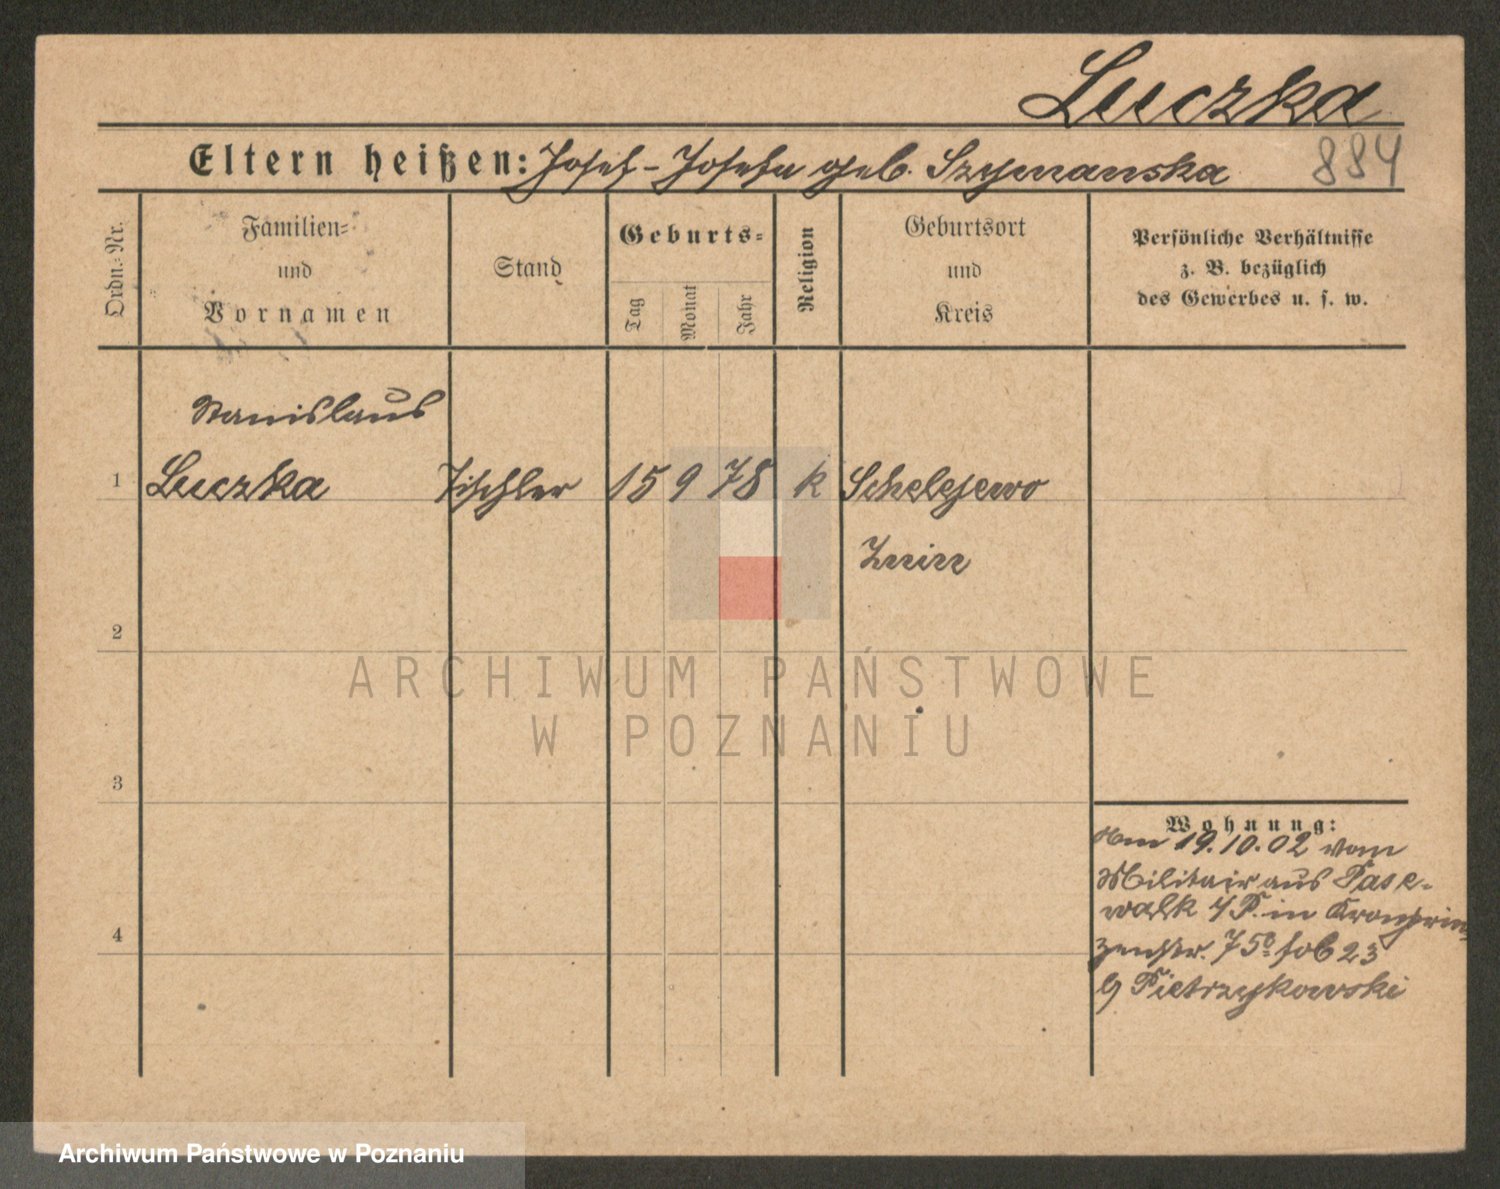 Luczka
Eltern heißen: Josef - Josefa geb. Szymanska 884
Ordn.-Nr.
Familien-
und
Vornamen
Stand
Geburts-
Tag
Monat
Jahr
Religion
Geburtsort
und
Kreis
Persönliche Verhältnisse
z. B. bezüglich
des Gewerbes u. s. w.
Stanislaus
1 Luczka Tischler 15 9 78 k Schelejewo
Znin
2
ARCHIWUM PAŃSTWOWE
W POZNANIU
3
4
Wohnung:
Am 19.10.02 vom
Militair aus Pase-
walk in Kronprin-
zenstr. 23
Pietrzykowski
Archiwum Państwowe w Poznaniu